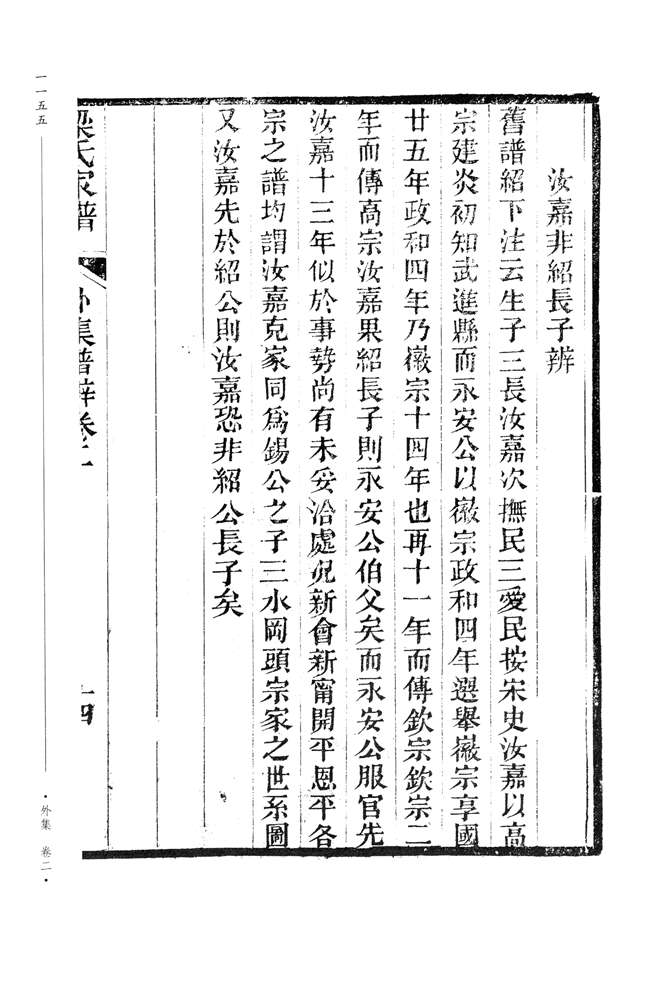 汝嘉非紹長子辨
舊譜紹下注云生子三長汝嘉次撫民三愛民按宋史汝嘉以高
宗建炎初知武進縣而永安公以徽宗政和四年選舉徽宗享國
廿五年政和四年乃徽宗十四年也再十一年而傳欽宗欽宗二
年而傳高宗汝嘉果紹長子則永安公伯父矣而永安公服官先
汝嘉十三年似於事勢尚有未妥洽處況新會新甯開平恩平各
宗之譜均謂汝嘉克家同爲錫公之子三水岡頭宗家之世系圖
又汝嘉先於紹公則汝嘉恐非紹公長子矣
梁氏家譜 外集譜辨卷二 十四
一一五五
·外集 卷二·